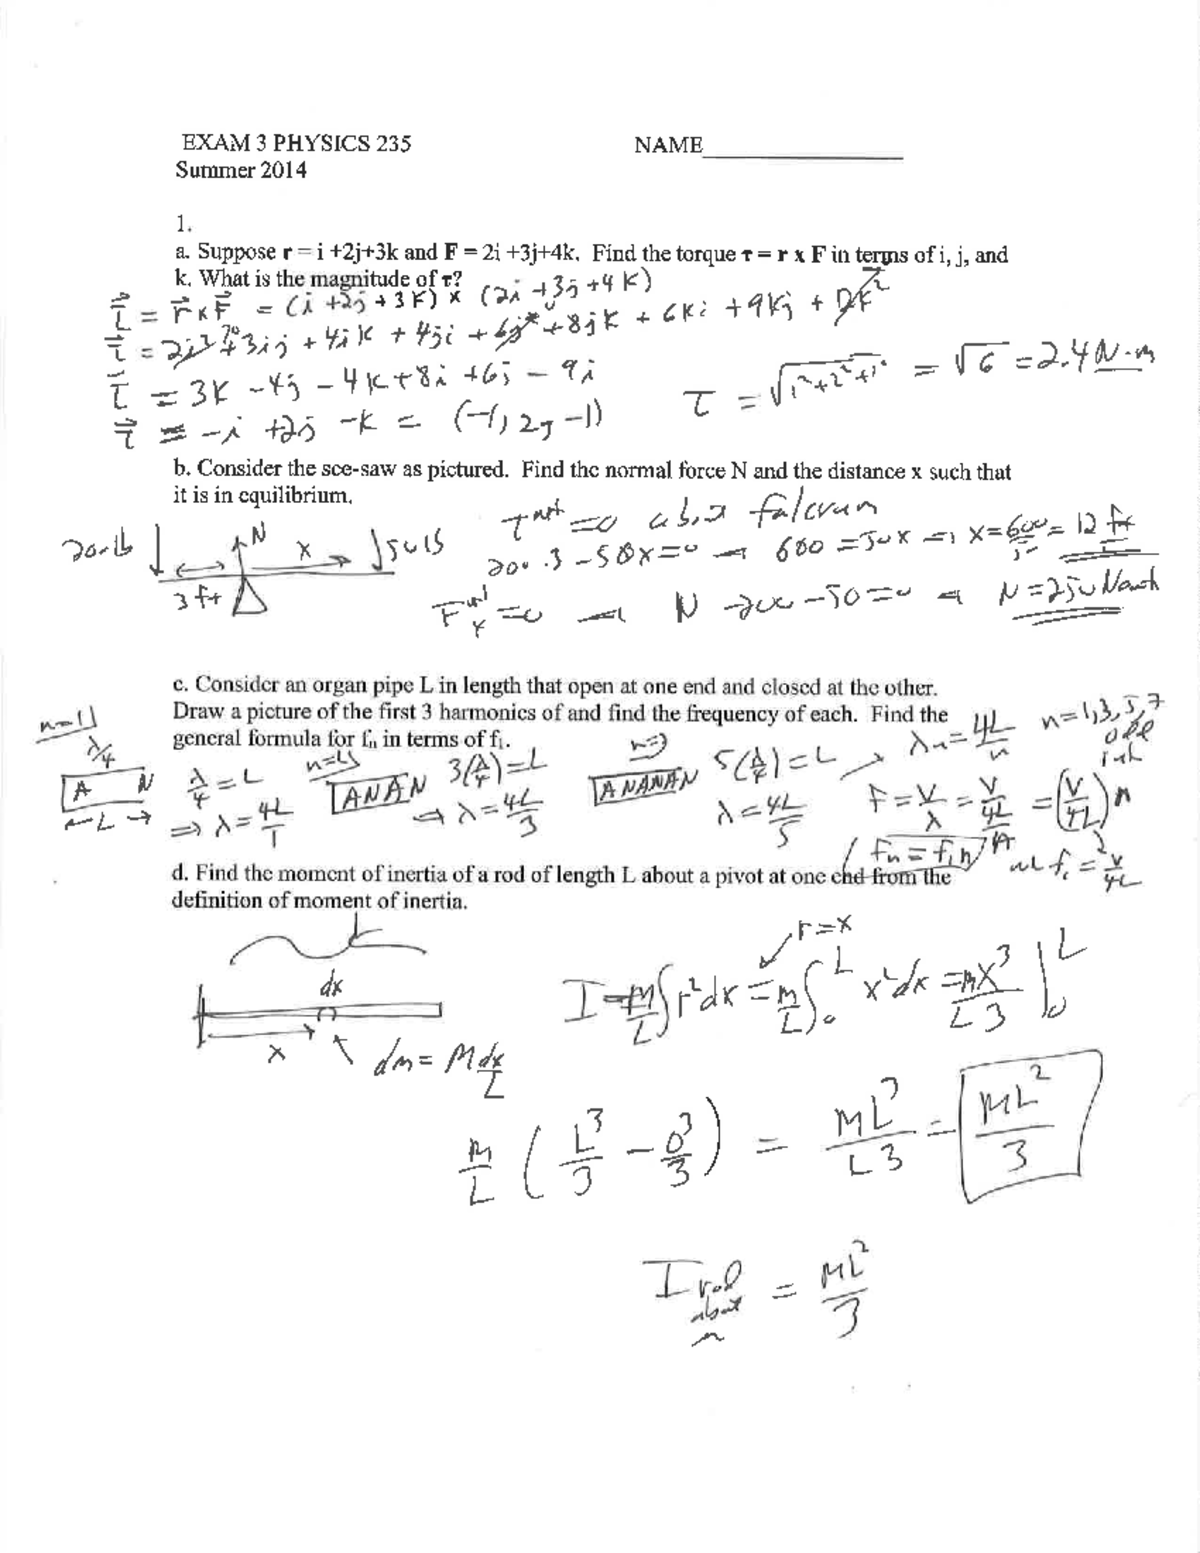 EXAM 3 PHYSICS 235 NAME
Summer 2014
1.
a. Suppose r = i +2j+3k and F = 2i +3j+4k. Find the torque τ = r x F in terms of i, j, and
k. What is the magnitude of τ?
τ = r x F = (i + 2j + 3k) x (2i + 3j + 4k)
+ 3ij + 4ik + 4ji + 8jk + 6ki + 9kj +
τ = 3k - 4j - 4k + 8i + 6j - 9i
τ = √1²+2²+1² = √6 = 2.4 N·m
τ = -i + 2j - k = (-1, 2, -1)
b. Consider the see-saw as pictured. Find the normal force N and the distance x such that
it is in equilibrium.
τ net = 0 about falcrum
200 lb N x 50 lb
200 · 3 - 50x = 0 → 600 = 50x → x = 600 = 12 ft
3 ft
F net = 0 → N - 200 - 50 = 0 → N = 250
c. Consider an organ pipe L in length that open at one end and closed at the other.
Draw a picture of the first 3 harmonics of and find the frequency of each. Find the
general formula for fn in terms of f1.
n=1 λ/4 A N ←L→
λ/4 = L
⇒ λ = 4L/1
ANAN 3(λ/4) = L
⇒ λ = 4L/3
ANANAN 5(λ/4) = L
λ = 4L/5
λn = 4L/n n = 1,3,5,7
odd
F = V/λ = V/(4L/n) = (V/4L) n
fn = f1 n f1 = V/4L
d. Find the moment of inertia of a rod of length L about a pivot at one end from the
definition of moment of inertia.
L
r = x
dx
I = M/L ∫ r² dx = M/L ∫₀ᴸ x² dx = M x³/L 3 |₀ᴸ
x dm = M dx/L
M/L ( L³/3 - 0³/3 ) = ML³/L3 = ML²/3
I rod about = ML²/3